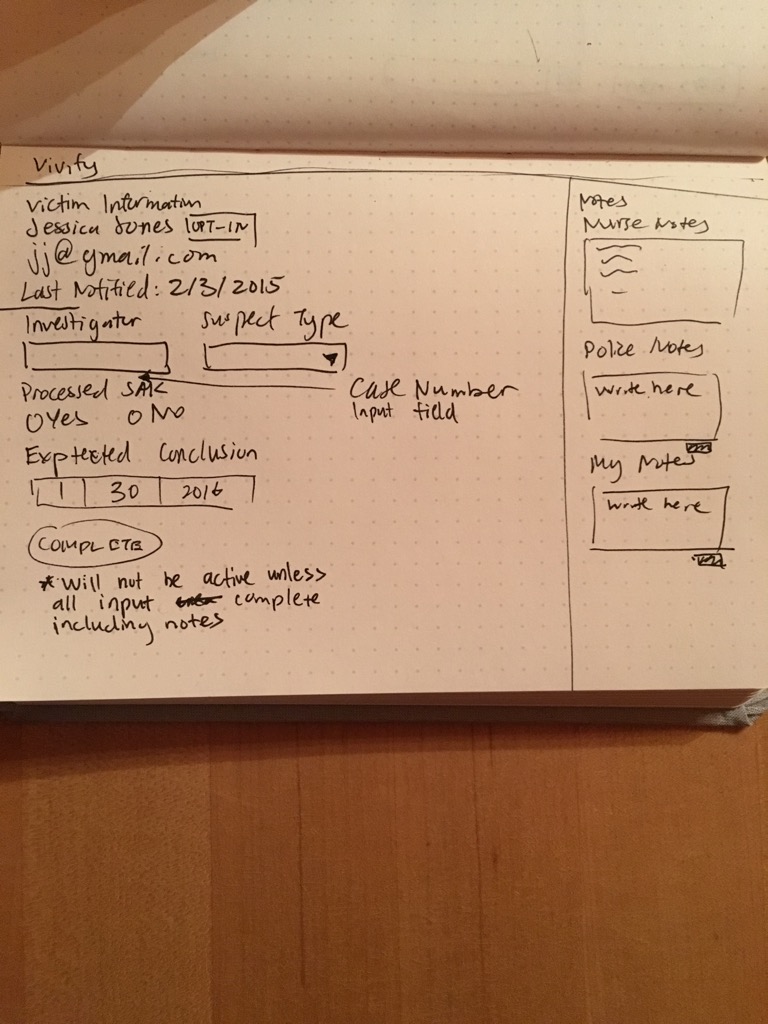 Vivify
Victim Information
Jessica Jones OPT-IN
jj@gmail.com
Last Notified: 2/3/2015
Investigator
Suspect Type
Processed SAK
O Yes O No
Case Number
Input field
Exptected Conclusion
1 30 2016
COMPLETE
* Will not be active unless
all input complete
including notes
Notes
Nurse Notes
Police Notes
Write here
My Notes
Write here